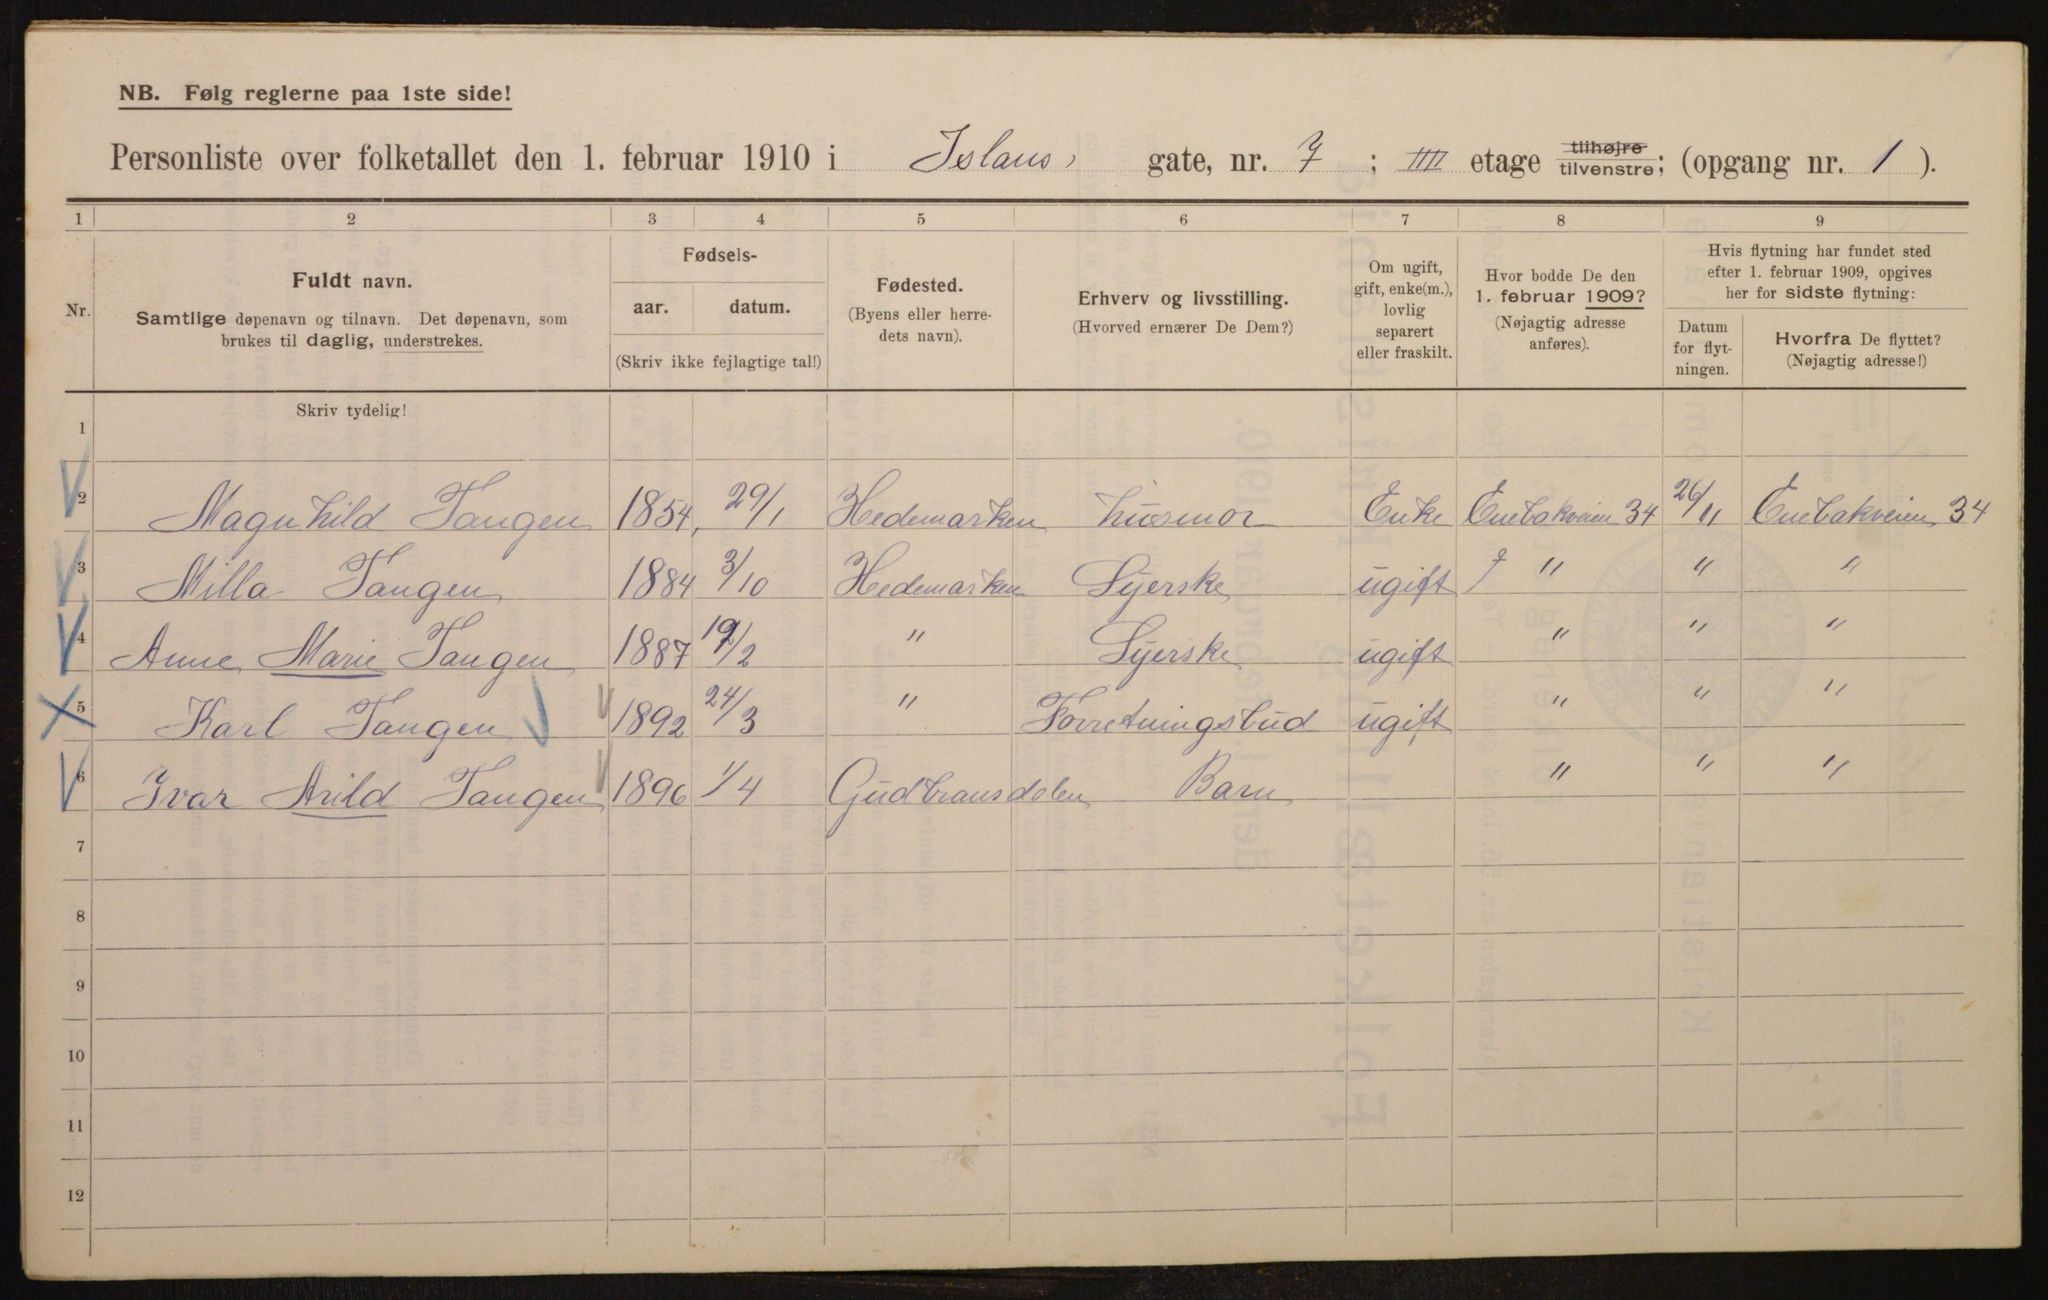 NB. Følg reglerne paa 1ste side!
Personliste over folketallet den 1. februar 1910 i Islans gate, nr. 7 ; IIII etage tilhøjre/tilvenstre; (opgang nr. 1 ).
1 2 3 4 5 6 7 8 9
Nr.
Fuldt navn.
Samtlige døpenavn og tilnavn. Det døpenavn, som
brukes til daglig, understrekes.
Fødsels-
aar. datum.
(Skriv ikke fejlagtige tal!)
Fødested.
(Byens eller herre-
dets navn).
Erhverv og livsstilling.
(Hvorved ernærer De Dem?)
Om ugift,
gift, enke(m.),
lovlig
separert
eller fraskilt.
Hvor bodde De den
1. februar 1909?
(Nøjagtig adresse
anføres).
Hvis flytning har fundet sted
efter 1. februar 1909, opgives
her for sidste flytning:
Datum
for flyt-
ningen.
Hvorfra De flyttet?
(Nøjagtig adresse!)
Skriv tydelig!
1
2 Magnhild Tangen 1854, 29/1 Hedemarken husmor Enke Enebakveien 34 26/11 Enebakveien 34
3 Milla Tangen 1884 3/10 Hedemarken Syerske ugift " " "
4 Anne Marie Tangen 1887 /2 " Syerske ugift " " "
5 Karl Tangen 1892 24/3 " Forretningsbud ugift " " "
6 Ivar Arild Tangen 1896 1/4 Gudbransdalen Barn " " "
7
8
9
10
11
12